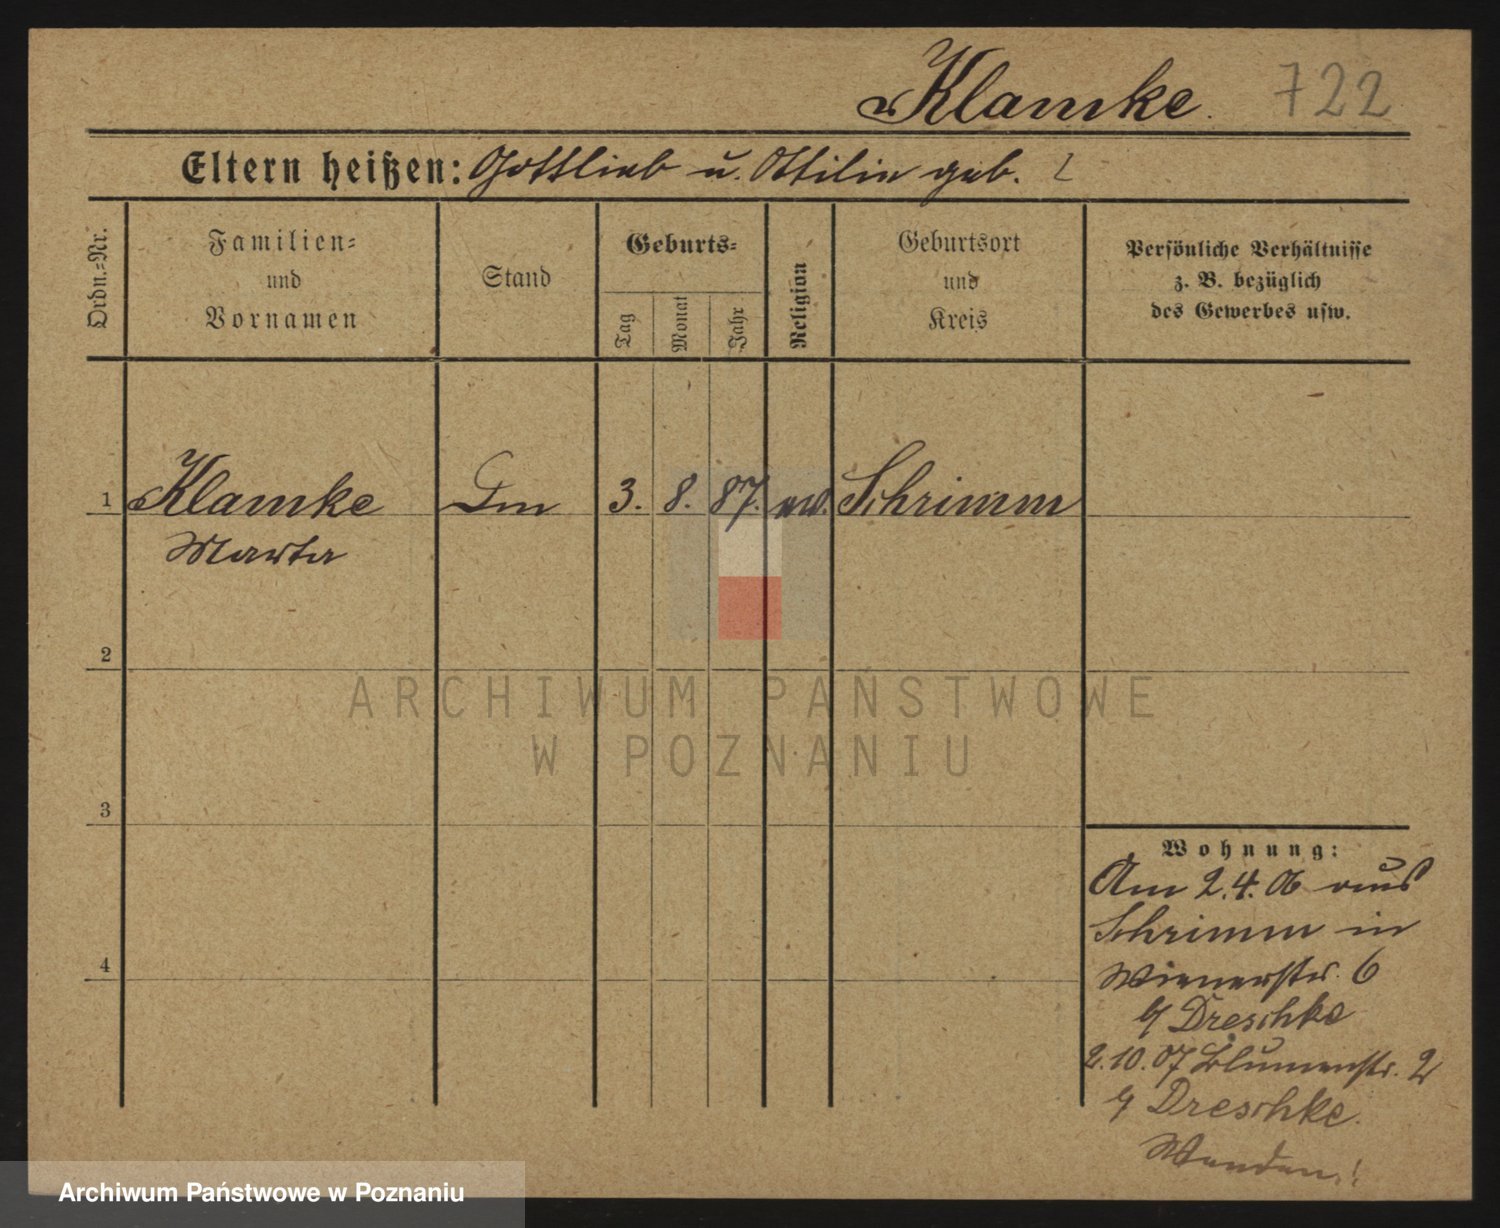 Klamke. 722
Eltern heißen: Gottlieb u. Ottilie geb.
Ordn.=Nr.
Familien=
und
Vornamen
Stand
Geburts=
Tag
Monat
Jahr
Religion
Geburtsort
und
Kreis
Persönliche Verhältnisse
z. B. bezüglich
des Gewerbes usw.
1 Klamke 3. 8. 87. ev. Schrimm
Marta
2
3
4
Wohnung:
Am 2.4.06 aus
Schrimm in
Wienerstr. 6
Dreschke
2.10.07 Blumenstr. 2
Dreschke.
Wenden!
ARCHIWUM PAŃSTWOWE
W POZNANIU
Archiwum Państwowe w Poznaniu